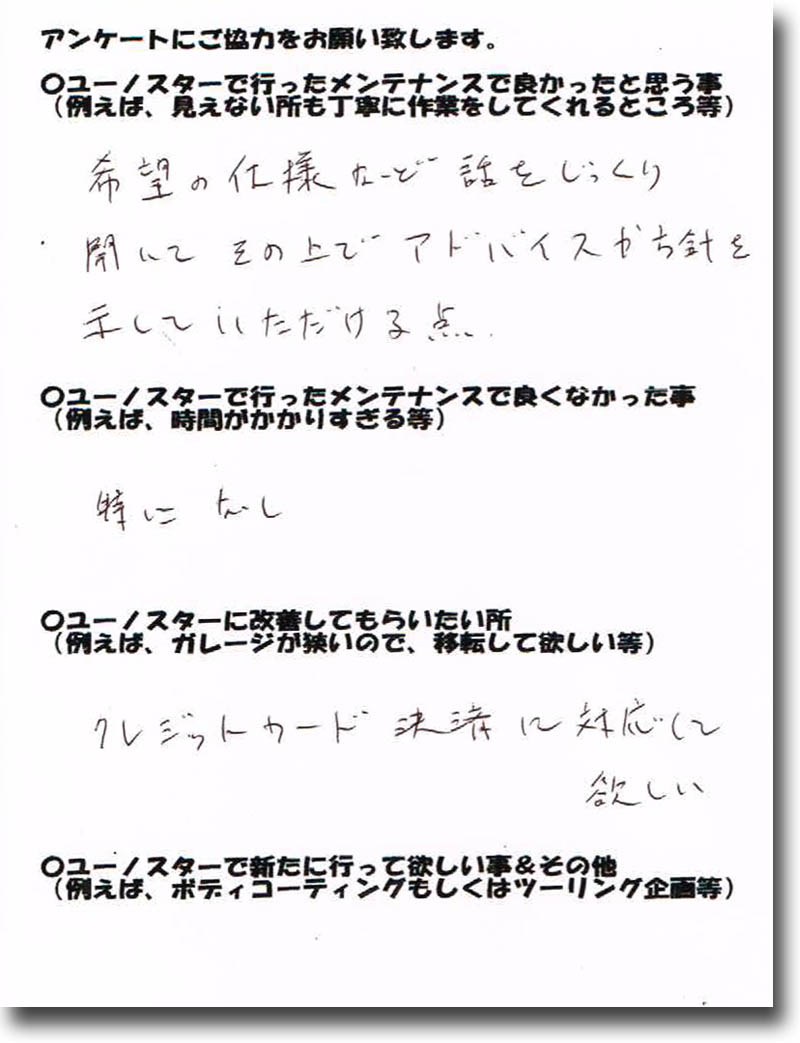 アンケートにご協力をお願い致します。
〇ユーノスターで行ったメンテナンスで良かったと思う事
（例えば、見えない所も丁寧に作業をしてくれるところ等）
希望の仕様など 話をじっくり
聞いて その上で アドバイスや方針を
示していただける点.
〇ユーノスターで行ったメンテナンスで良くなかった事
（例えば、時間がかかりすぎる等）
特に なし
〇ユーノスターに改善してもらいたい所
（例えば、ガレージが狭いので、移転して欲しい等）
クレジットカード 決済に対応して
欲しい
〇ユーノスターで新たに行って欲しい事＆その他
（例えば、ボディコーティングもしくはツーリング企画等）